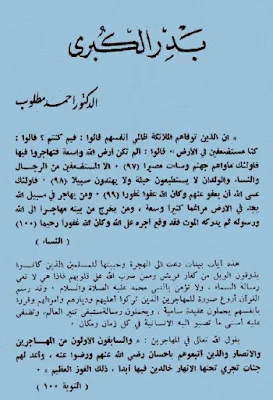 بدر الكبرى
الدكتور احمد مطلوب
« ان الذين توفاهم الملائكة ظالمي أنفسهم قالوا : فيم كنتم ؟ قالوا :
كنا مستضعفين في الأرض ، قالوا : ألم تكن أرض الله واسعة فتهاجروا فيها
فأولئك مأواهم جهنم وساءت مصيرا (٩٧) ٠ الا المستضعفين من الرجال
والنساء والولدان لا يستطيعون حيلة ولا يهتدون سبيلا (٩٨) ٠ فأولئك
عسى الله أن يعفو عنهم وكان الله عفوا غفورا (٩٩) ٠ ومن يهاجر في سبيل الله
يجد في الأرض مراغما كثيرا وسعة ، ومن يخرج من بيته مهاجرا الى الله
ورسوله ثم يدركه الموت فقد وقع اجره على الله وكان الله غفورا رحيما (١٠٠)
( النساء )
هذه آيات بينات دعت الى الهجرة وحببتها للمسلمين الذين كانوا
يذوقون الويل من كفار قريش وممن ضرب الله على قلوبهم فاذا هي لا تعي
رسالة السماء ، ولا تؤمن بالنبي محمد عليه الصلاة والسلام ٠ وقد رسم
القرآن أروع صورة للمهاجرين الذين تركوا أهليهم وديارهم وأموالهم وفروا
بأنفسهم يحملون عقيدة سامية ، ويحملون رسالة ستبقى تنير العالم، وتضفي
عليه أسمى ما تصبو اليه الانسانية في كل زمان ومكان ٠
يقول الله تعالى في المهاجرين : « والسابقون الأولون من المهاجرين
والانصار والذين اتبعوهم باحسان رضي الله عنهم ورضوا عنه ، وأعد لهم
جنات تجري تحتها الانهار خالدين فيها أبدا ، ذلك الفوز العظيم » ٠
( التوبة ١٠٠ )